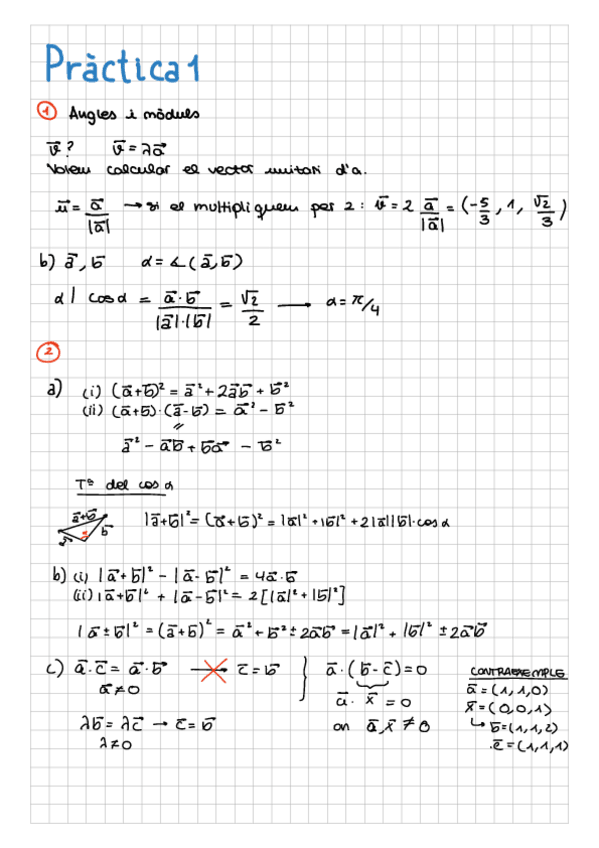 Pràctica 1
1 Angles i mòduls
v⃗? v⃗ = λa⃗
Volem calcular el vector unitari d'a.
u⃗ = a⃗/|a⃗| → si el multipliquem per 2: v⃗ = 2 a⃗/|a⃗| = (-5/3, 1, √2/3)
b) a⃗, b⃗ α = ∢(a⃗, b⃗)
α | cos α = a⃗·b⃗ / |a⃗|·|b⃗| = √2/2 → α = π/4
2
a) (i) (a⃗+b⃗)² = a⃗² + 2a⃗b⃗ + b⃗²
(ii) (a⃗+b⃗)·(a⃗-b⃗) = a⃗² - b⃗²
"
a⃗² - a⃗b⃗ + b⃗a⃗ - b⃗²
Tª del cos α
a⃗+b⃗ b⃗ a⃗ |a⃗+b⃗|² = (a⃗+b⃗)² = |a|² + |b|² + 2|a⃗||b⃗|·cos α
b) (i) |a⃗+b⃗|² - |a⃗-b⃗|² = 4a⃗·b⃗
(ii) |a⃗+b⃗|² + |a⃗-b⃗|² = 2[|a⃗|² + |b⃗|²]
|a⃗±b⃗|² = (a⃗±b⃗)² = a⃗² + b⃗² ± 2a⃗b⃗ = |a⃗|² + |b⃗|² ± 2a⃗b⃗
c) a⃗·c⃗ = a⃗·b⃗ → c⃗ = b⃗
a⃗ ≠ 0
λb⃗ = λc⃗ → c⃗ = b⃗
λ ≠ 0
a⃗·(b⃗-c⃗) = 0
a⃗·x⃗ = 0
on a⃗, x⃗ ≠ 0
CONTRAEXEMPLE
a⃗ = (1,1,0)
x⃗ = (0,0,1)
↳ b⃗ = (1,1,2)
c⃗ = (1,1,1)